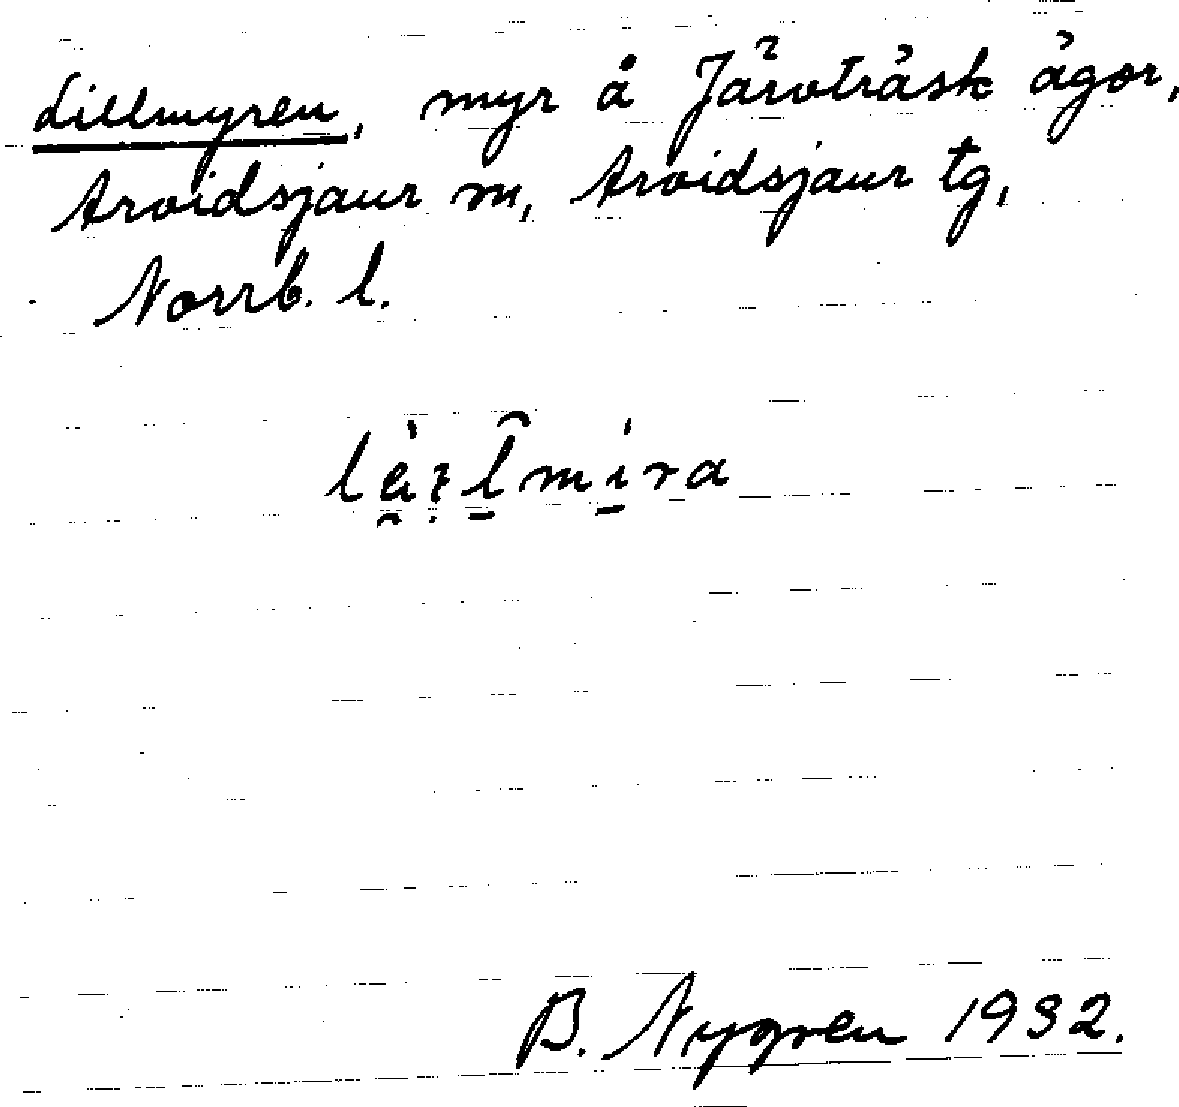 Lillmyren, myr å Järvträsk ägor,
Arvidsjaur sn, Arvidsjaur tg,
Norrb. l.
B. Nygren 1932.